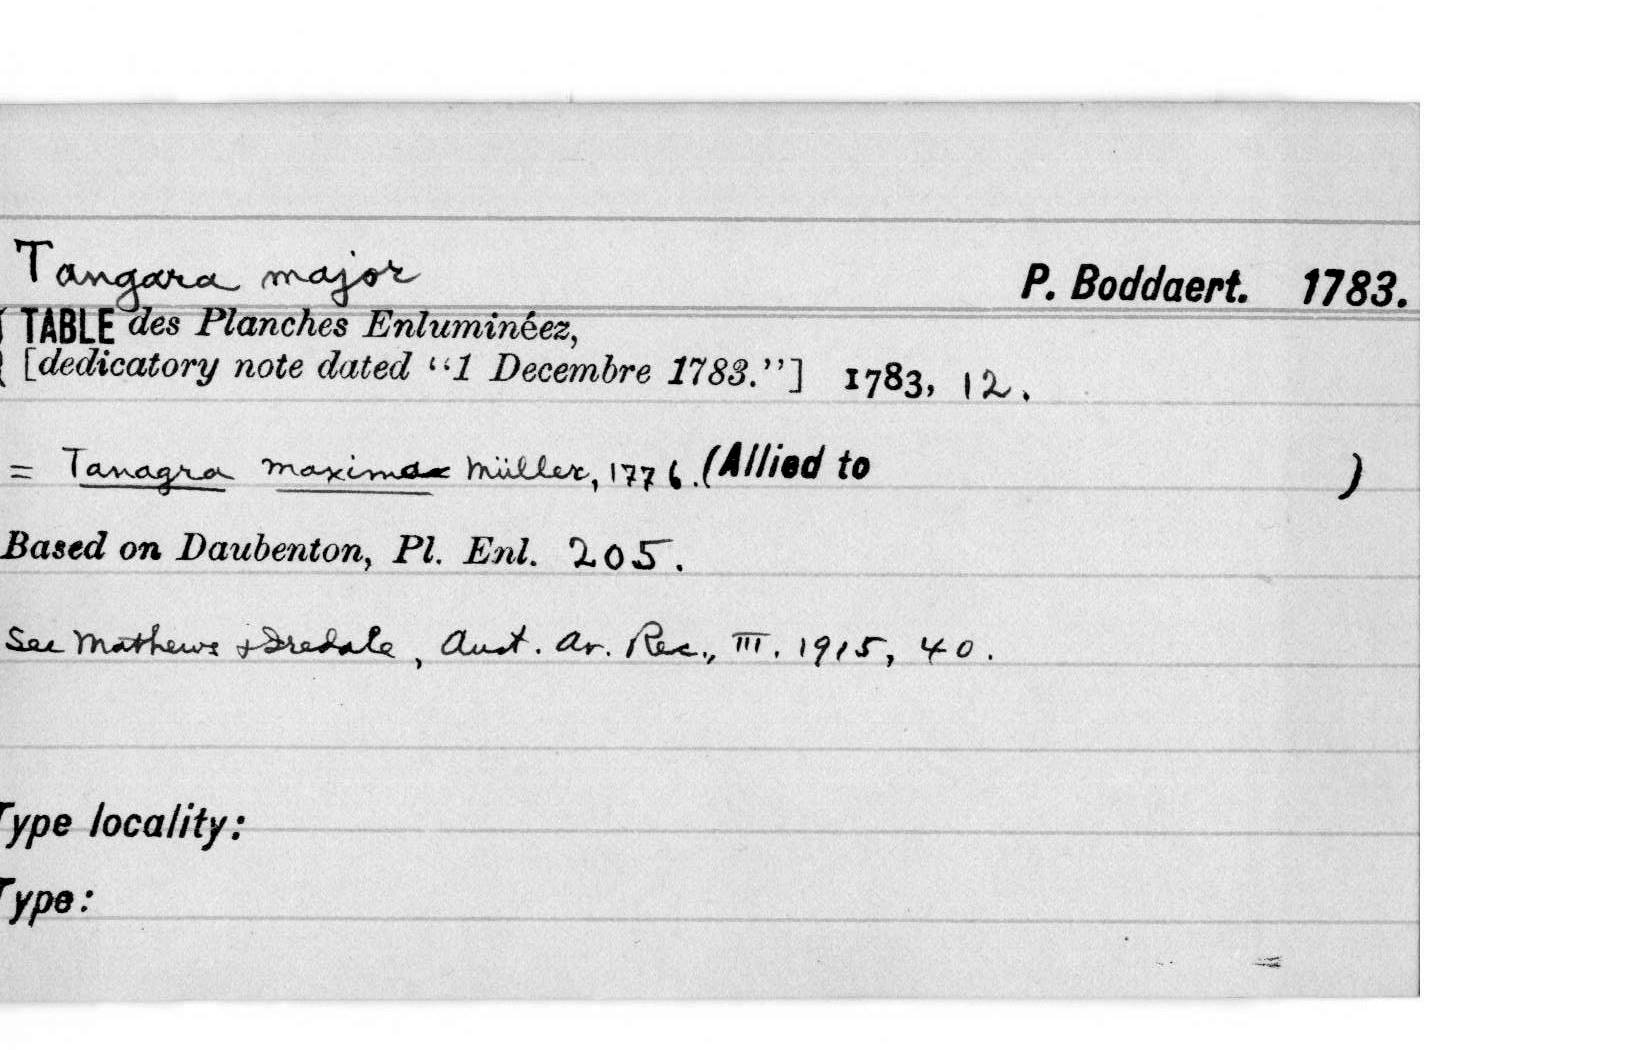 Tangara major P. Boddaert. 1783.
TABLE des Planches Enluminéez,
[dedicatory note dated “1 Decembre 1783.”] 1783, 12.
= Tanagra maxima Müller, 1776. (Allied to )
Based on Daubenton, Pl. Enl. 205.
See Mathews & Iredale, Aust. Av. Rec., III. 1915, 40.
Type locality:
Type: